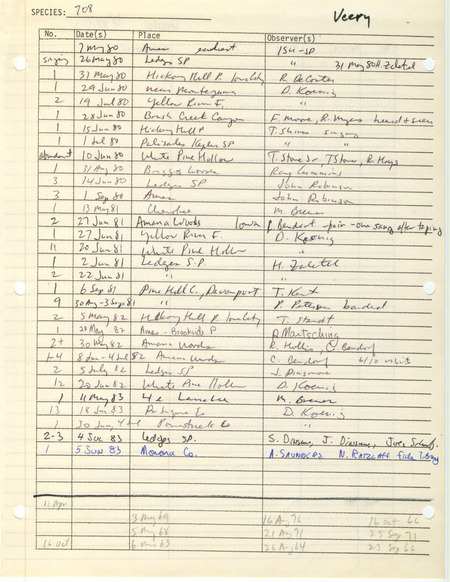 SPECIES: 708 Veery
No. Date(s) Place Observer(s)
7 May 80 Ames ISU-SP
singing 26 May 80 Ledges SP " 31 May 80
1 31 May 80 Hickory Hill P. R. DeCoster
1 29 Jun 80 near Montezuma D. Koenig
2 19 Jul 80 Yellow River F. "
1 28 Jun 80 Brush Creek Canyon F. Moore, R. Myers heard + seen
1 15 Jun 80 Hickory Hill P T. Shires singing
1 1 Jul 80 Palisades Kepler SP " "
abundant 10 Jun 80 White Pine Hollow T. Stone Sr, T Stone, R. Hays
1 31 Aug 80 Boggs Woods Ray Cummins
3 14 Jun 80 Ledges SP John Robinson
3 1 Sep 80 Ames John Robinson
1 13 May 81 Cherokee M. Brewer
2 27 Jun 81 Amana Woods Iowa J. Bendorf pair - one sang after taping
1 27 Jun 81 Yellow River F D. Koenig
11 20 Jun 81 White Pine Hollow "
1 2 Jun 81 Ledges S.P. H. Zaletel
2 22 Jun 81 " "
1 6 Sep 81 Pine Hill C, Davenport T. Kent
9 30 Aug - 3 Sep 81 " P. Petersen banded
2 5 May 82 Hickory Hill P T. Staudt
1 20 May 82 Ames - Brookside P P Martsching
2+ 30 May 82 Amana Woods R. Hollis, C. Bendorf
1-4 8 Jun - 4 Jul 82 Amana Woods C. Bendorf 6/10 visits
2 5 July 82 Ledges SP J. Dinsmore
12 20 Jun 82 White Pine Hollow D. Koenig
1 11 May 83 M. Brewer
13 18 Jun 83 D. Koenig
1 30 Jun, 4 Jul "
2-3 4 Jun 83 Ledges SP. S. Dinsmore, J. Dinsmore,
1 5 JUN 83 Monona Co. A. SAUNDERS N. RATZLAFF
11 Apr
3 May 69 16 Aug 76 16 Oct 66
5 May 68 21 Aug 71 25 Sep 71
16 Oct 6 May 63 26 Aug 64 23 Sep 66